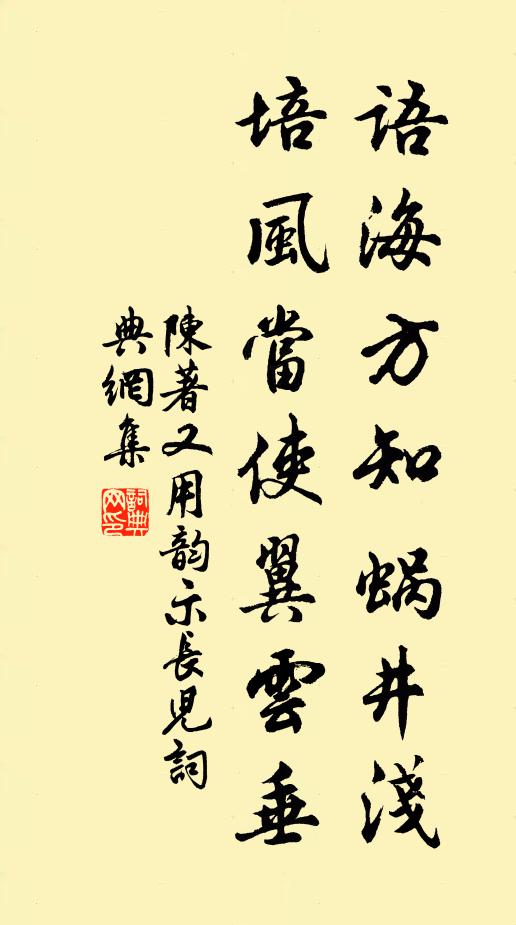 語海方知蝸井淺
培風當使翼雲垂
陳著又用韵示長児詞
典網集
詞典
网印